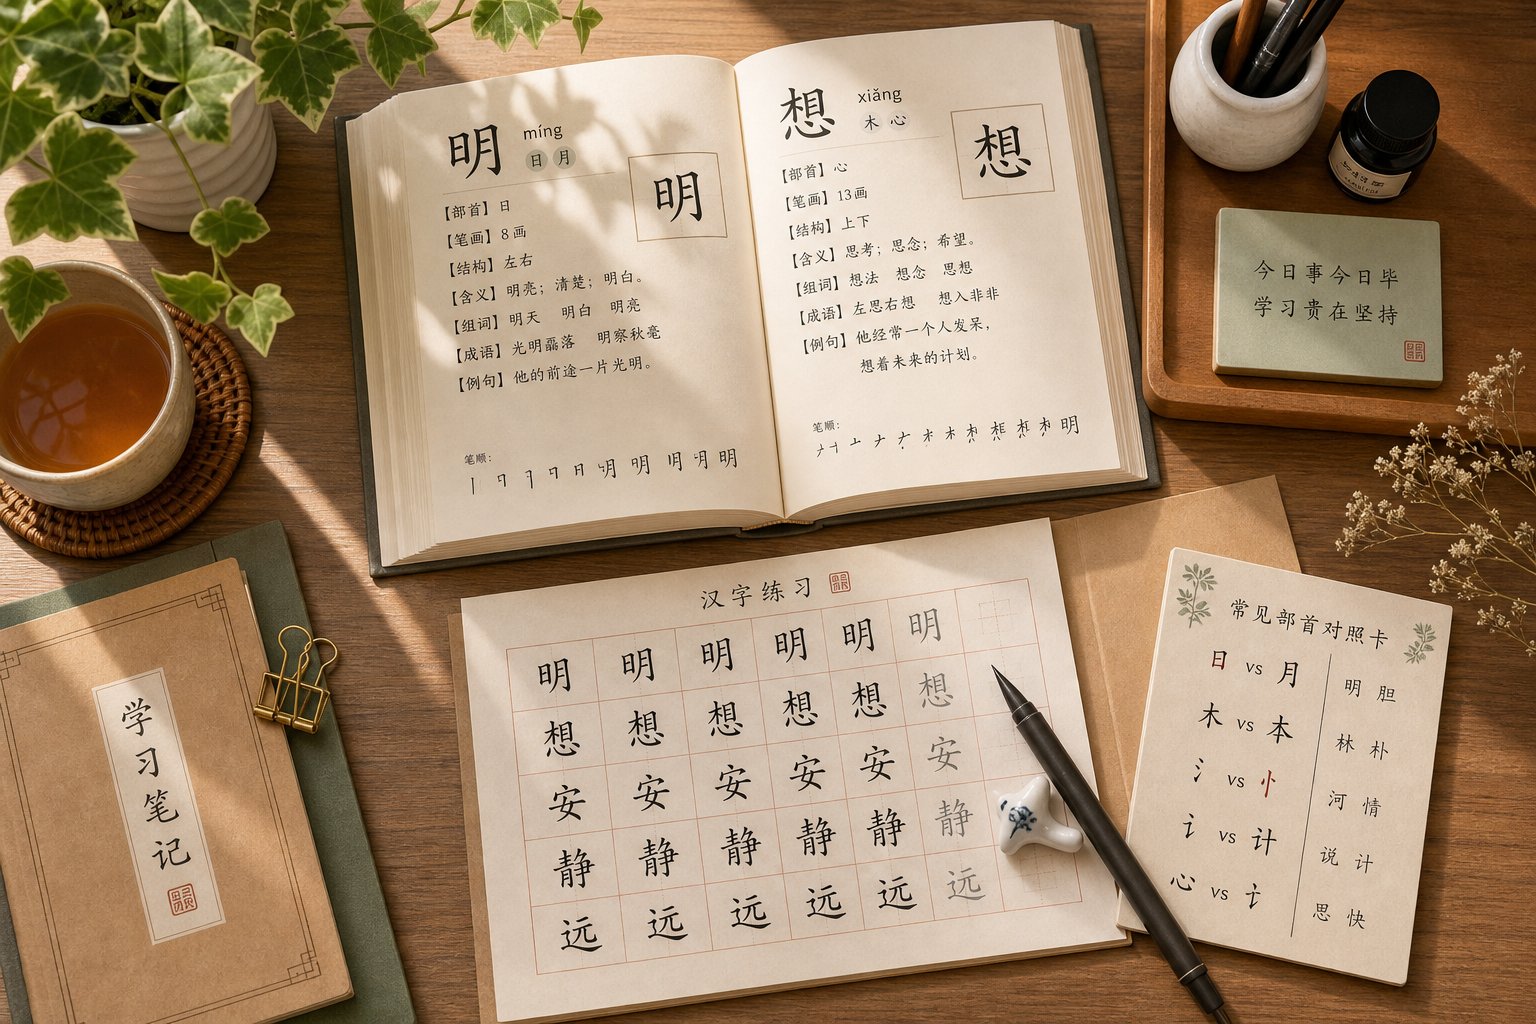 明 míng
日 月
明
【部首】日
【笔画】8画
【结构】左右
【含义】明亮；清楚；明白。
【组词】明天 明白 明亮
【成语】光明磊落 明察秋毫
【例句】他的前途一片光明。
笔顺：
明
想 xiǎng
木 心
想
【部首】心
【笔画】13画
【结构】上下
【含义】思考；思念；希望。
【组词】想法 想念 思想
【成语】左思右想 想入非非
【例句】他经常一个人发呆，
想着未来的计划。
笔顺：
明
今日事今日毕
学习贵在坚持
学习笔记
汉字练习
明 明 明 明 明 明
想 想 想 想 想 想
安 安 安 安 安 安
静 静 静 静 静 静
远 远 远 远 远 远
常见部首对照卡
日 vs 月 明 胆
木 vs 本 林 朴
氵 vs 忄 河 情
讠 vs 计 说 计
心 vs 讠 思 快